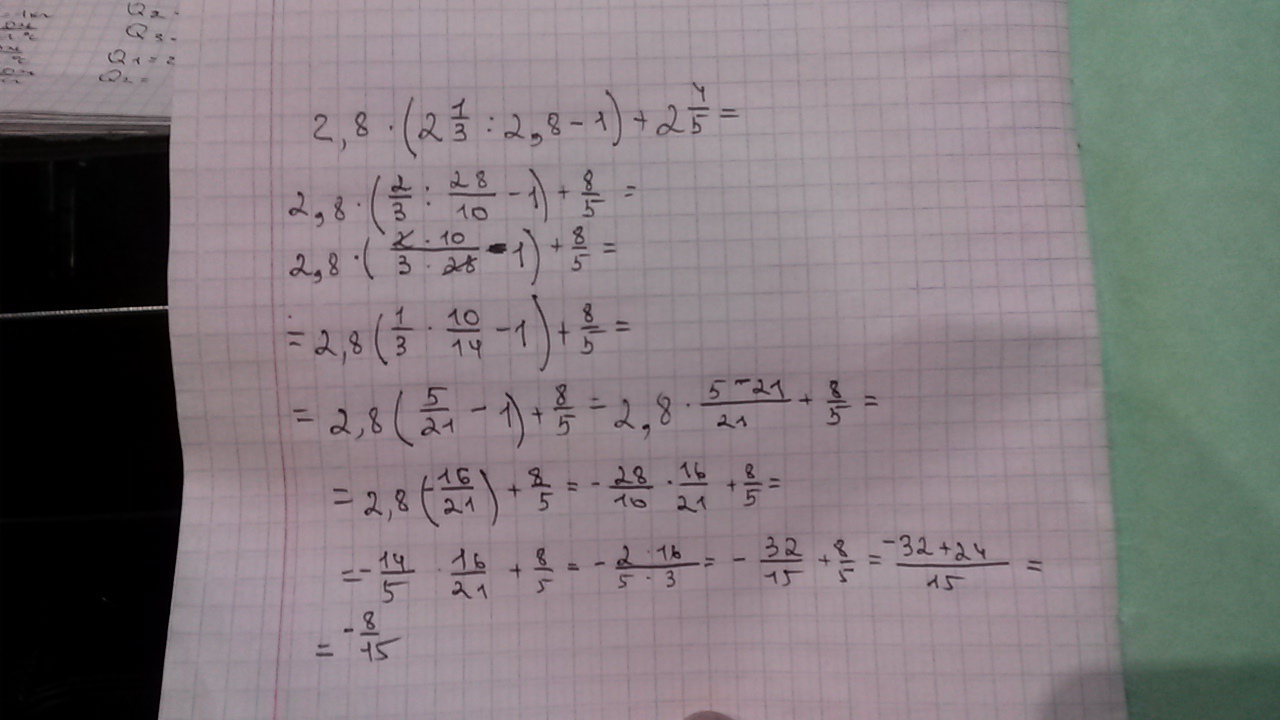 Q₂
Q₃
Q₁ =
Q₂ =
2,8 · (2 1/3 : 2,8 - 1) + 2 4/5 =
2,8 · (2/3 : 28/10 - 1) + 8/5 =
2,8 · (2 · 10/3 · 28 - 1) + 8/5 =
= 2,8 (1/3 · 10/14 - 1) + 8/5 =
= 2,8 (5/21 - 1) + 8/5 = 2,8 · 5 - 21/21 + 8/5 =
= 2,8 (-16/21) + 8/5 = - 28/10 · 16/21 + 8/5 =
= - 14/5 · 16/21 + 8/5 = - 2 · 16/5 · 3 = - 32/15 + 8/5 = -32 + 24/15 =
= -8/15